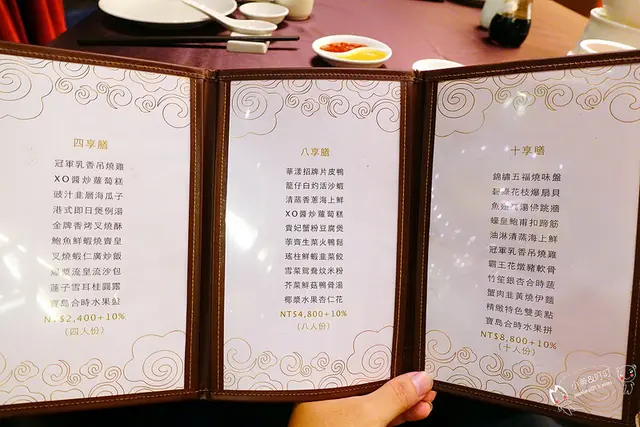 四享膳
冠軍乳香吊燒雞
XO醬炒蘿蔔糕
豉汁韭層海瓜子
港式即日煲例湯
金牌香烤叉燒酥
鮑魚鮮蝦燒賣皇
叉燒蝦仁廣炒飯
流皇流沙包
蓮子雪耳桂圓露
寶島合時水果盤
NT$2,400+10%
(四人份)
八享膳
華漾招牌片皮鴨
籠仔白灼活沙蝦
清蒸香蔥海上鮮
XO醬炒蘿蔔糕
貴妃蟹粉豆腐煲
荸齊生菜火鴨鬆
瑤柱鮮蝦韭菜餃
雪菜鴛鴦炆米粉
芥菜鮮菇鴨骨湯
椰漿水果杏仁花
NT$4,800+10%
(八人份)
十享膳
錦繡五福燒味盤
碧綠花枝爆扇貝
湯佛跳牆
蠔皇鮑甫扣蹄筋
油淋清蒸海上鮮
冠軍乳香吊燒雞
霸王花燉豬軟骨
竹笙銀杏合時蔬
蟹肉韭黃燒伊麵
精緻特色雙美點
寶島合時水果拼
NT$8,800+10%
(十人份)